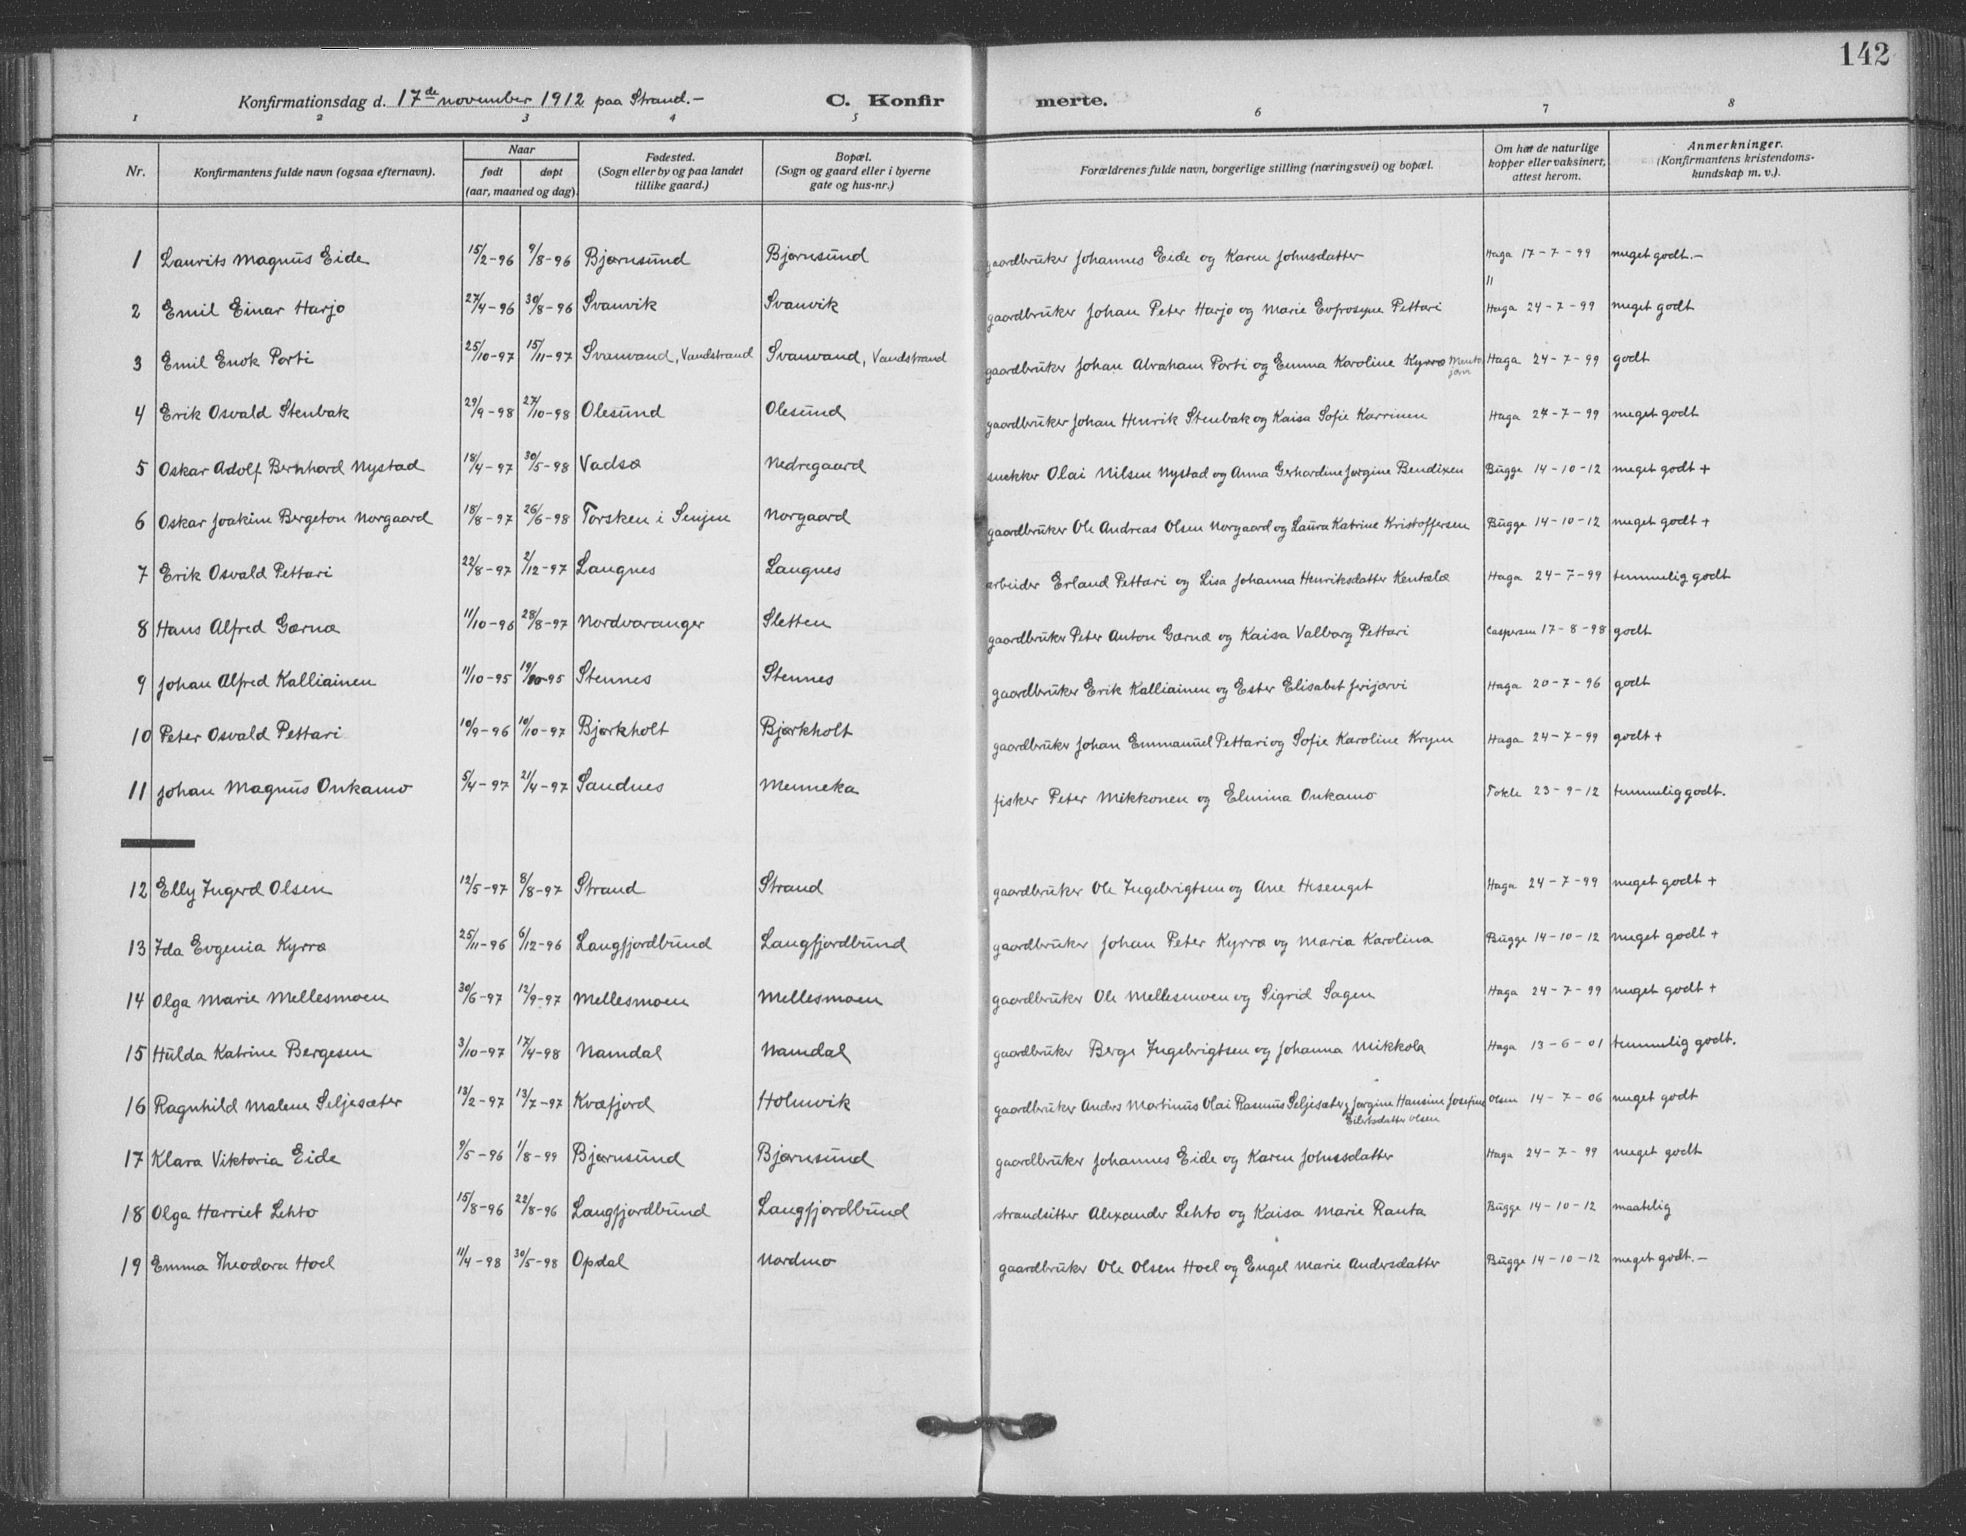 142
Konfirmationsdag d. 17de november 1912 paa Strand. –
C. Konfirmerte.
1 2 3 4 5 6 7 8
Nr. | Konfirmantens fulde navn (ogsaa efternavn). | Naar født døpt (aar, maaned og dag) | Fødested. (Sogn eller by og paa landet tillike gaard.) | Bopæl. (Sogn og gaard eller i byerne gate og hus-nr.) | Forældrenes fulde navn, borgerlige stilling (næringsvei) og bopæl. | Om har de naturlige kopper eller vaksinert, attest herom. | Anmerkninger. (Konfirmantens kristendomskundskap m. v.).
1 Laurits Magnus Eide 15/2-96 9/8-96 Bjørnsund Bjørnsund gaardbruker Johannes Eide og Karen Johnsdatter Haga 17-7-99 meget godt. –
"
2 Emil Einar Harjo 27/4-96 30/8-96 Svanvik Svanvik gaardbruker Johan Peter Harjo og Marie Eufrosyne Pettari Haga 24-7-99 meget godt
3 Emil Enok Porti 25/10-97 15/11-97 Svanvand, Vandstrand Svanvand, Vandstrand gaardbruker Johan Abraham Porti og Emma Karoline Kyrrø Haga 24-7-99 godt
4 Erik Osvald Stenbak 29/9-98 27/10-98 Olesund Olesund gaardbruker Johan Henrik Stenbak og Kaisa Sofie Karrinen Haga 24-7-99 meget godt
5 Oskar Adolf Bernhard Nystad 18/4-97 30/5-98 Vadsø Nedregaard snekker Olai Nilsen Nystad og Anna Gerhardine Jørgine Bendixen Bugge 14-10-12 meget godt +
6 Oskar Joakim Bergeton Norgaard 18/8-97 26/6-98 Torsken i Senjen Norgaard gaardbruker Ole Andreas Olsen Norgaard og Laura Katrine Kristoffersen Bugge 14-10-12 meget godt +
7 Erik Osvald Pettari 22/8-97 2/12-97 Langnes Langnes arbeider Erland Pettari og Lisa Johanna Henriksdatter Kentælæ Haga 24-7-99 temmelig godt
8 Hans Alfred Gærnæ 11/10-96 28/8-97 Nordvaranger Sletten gaardbruker Peter Anton Gærnæ og Kaisa Valborg Pettari Caspersen 17-8-98 godt
9 Johan Alfred Kalliainen 11/10-95 19/10-95 Stennes Stennes gaardbruker Erik Kalliainen og Ester Elisabet Jerijærvi Haga 20-7-96 godt
10 Peter Osvald Pettari 10/9-96 10/10-97 Bjørkholt Bjørkholt gaardbruker Johan Emmanuel Pettari og Sofie Karoline Krym Haga 24-7-99 godt +
11 Johan Magnus Onkamo 5/4-97 21/4-97 Sandnes Menneka fisker Peter Mikkonen og Elmina Onkamo Tokle 23-9-12 temmelig godt.
12 Elly Ingerd Olsen 12/5-97 8/8-97 Strand Strand gaardbruker Ole Ingebrigtsen og Ane Hesenget Haga 24-7-99 meget godt +
13 Ida Evgenia Kyrrø 25/11-96 6/12-96 Langfjordbund Langfjordbund gaardbruker Johan Peter Kyrrø og Maria Karolina Bugge 14-10-12 meget godt +
14 Olga Marie Mellesmoen 30/6-97 12/9-97 Mellesmoen Mellesmoen gaardbruker Ole Mellesmoen og Sigrid Sagen Haga 24-7-99 meget godt +
15 Hulda Katrine Bergesen 3/10-97 17/4-98 Namdal Namdal gaardbruker Berge Ingebrigtsen og Johanna Mikkola Haga 13-6-01 temmelig godt.
16 Ragnhild Malene Seljesæter 13/2-97 13/7-97 Kvæfjord Holmvik gaardbruker Anders Martinus Olai Rasmus Seljesæter og Jørgine Hansine Josefine Eilertsdatter Olsen Olsen 14-7-06 meget godt
17 Klara Viktoria Eide 9/5-96 1/8-99 Bjørnsund Bjørnsund gaardbruker Johannes Eide og Karen Johnsdatter Haga 24-7-99 meget godt
18 Olga Harriet Lehto 15/8-96 22/8-96 Langfjordbund Langfjordbund strandsitter Alexander Lehto og Kaisa Marie Ranta Bugge 14-10-12 maatelig
19 Emma Theodora Hoel 11/4-98 30/5-98 Opdal Nordmo gaardbruker Ole Olsen Hoel og Engel Marie Andersdatter Bugge 14-10-12 meget godt. –